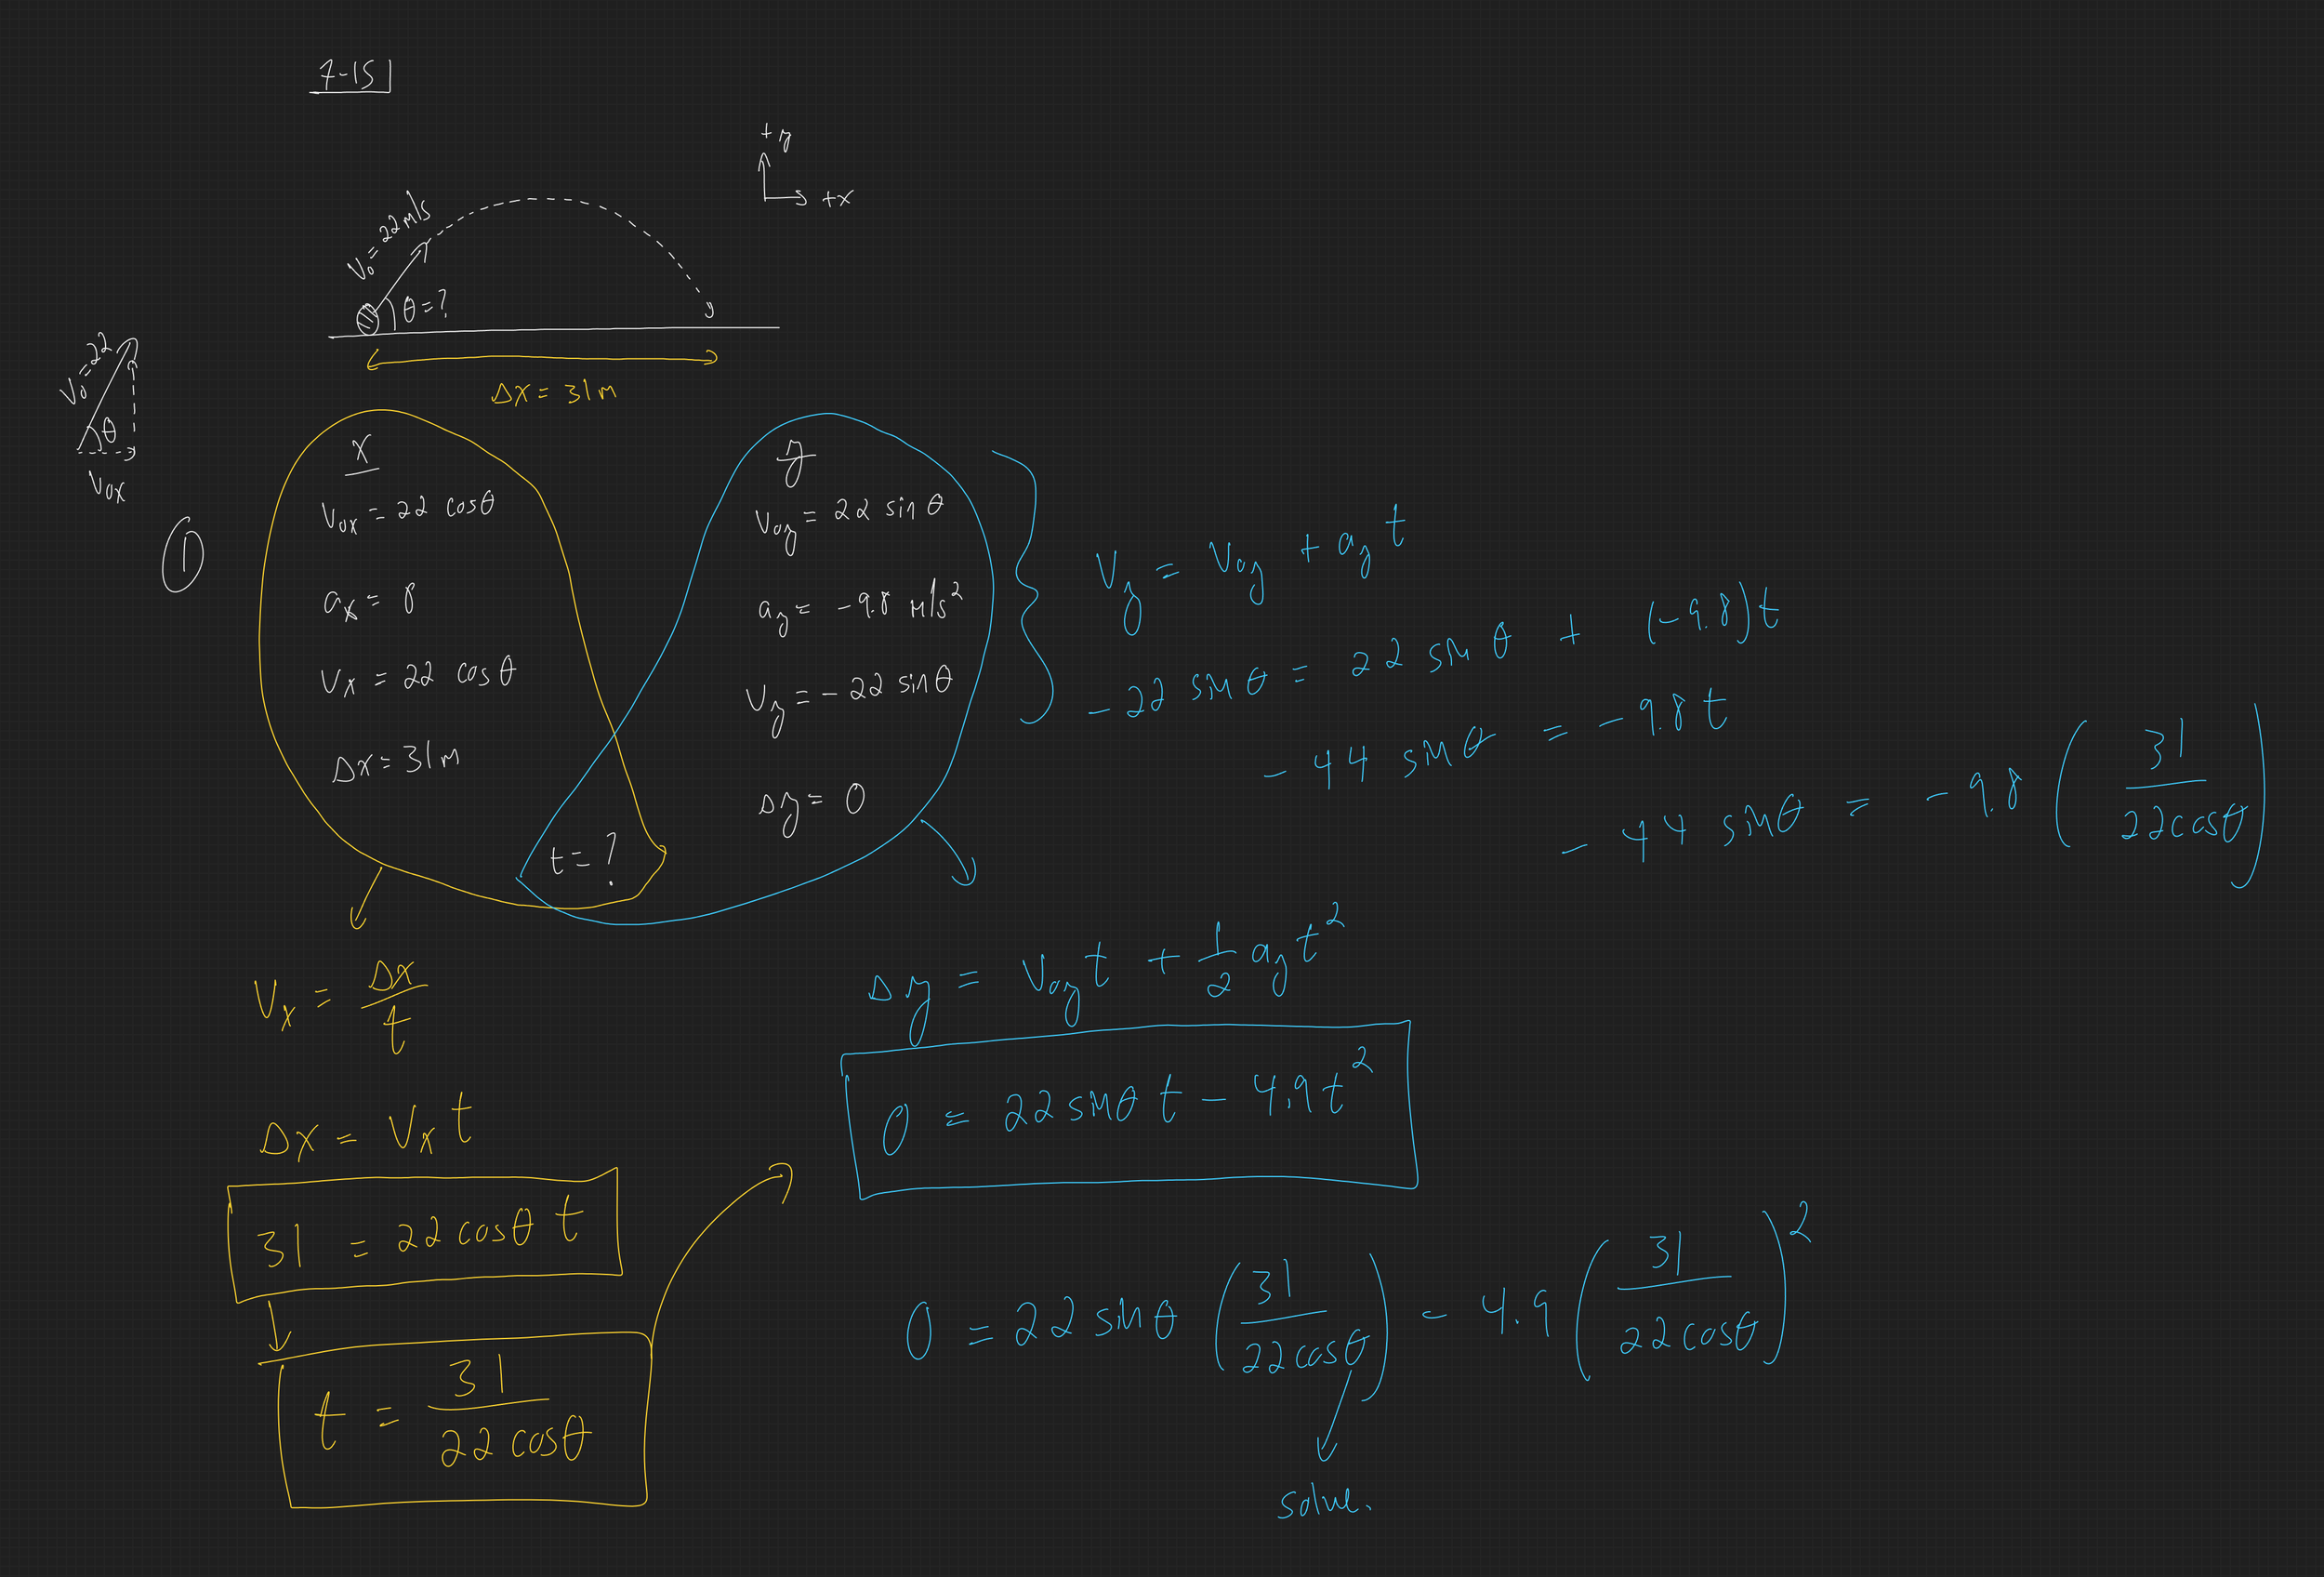 7-15
+y
+x
V₀ = 22 m/s
θ = ?
Δx = 31m
V₀ = 22
θ
V₀ₓ
①
x
V₀ₓ = 22 cosθ
aₓ = 0
Vₓ = 22 cosθ
Δx = 31m
t = ?
y
V₀y = 22 sinθ
ay = -9.8 m/s²
Vy = -22 sinθ
Δy = 0
Vy = V₀y + ay t
-22 sinθ = 22 sinθ + (-9.8)t
-44 sinθ = -9.8t
-44 sinθ = -9.8 (31 / 22cosθ)
Vₓ = Δx / t
Δx = Vₓ t
31 = 22 cosθ t
t = 31 / 22 cosθ
Δy = V₀y t + 1/2 ay t²
0 = 22 sinθ t - 4.9t²
0 = 22 sinθ (31 / 22cosθ) - 4.9 (31 / 22cosθ)²
solve.